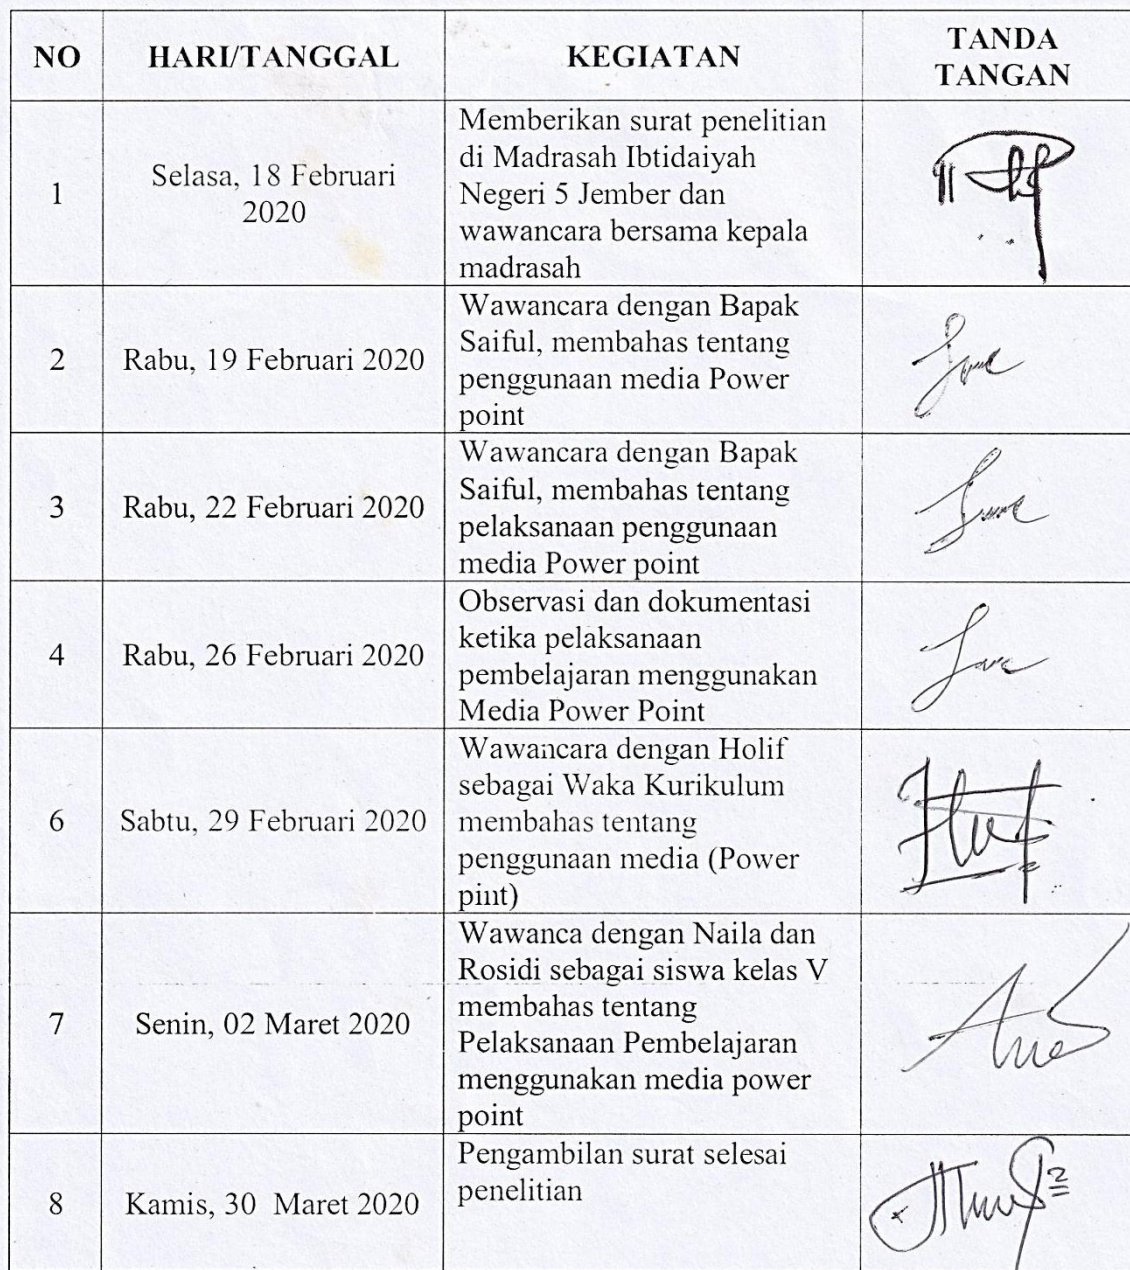 NO HARI/TANGGAL KEGIATAN TANDA
TANGAN
1 Selasa, 18 Februari
2020
Memberikan surat penelitian
di Madrasah Ibtidaiyah
Negeri 5 Jember dan
wawancara bersama kepala
madrasah
2 Rabu, 19 Februari 2020
Wawancara dengan Bapak
Saiful, membahas tentang
penggunaan media Power
point
3 Rabu, 22 Februari 2020
Wawancara dengan Bapak
Saiful, membahas tentang
pelaksanaan penggunaan
media Power point
4 Rabu, 26 Februari 2020
Observasi dan dokumentasi
ketika pelaksanaan
pembelajaran menggunakan
Media Power Point
6 Sabtu, 29 Februari 2020
Wawancara dengan Holif
sebagai Waka Kurikulum
membahas tentang
penggunaan media (Power
pint)
7 Senin, 02 Maret 2020
Wawanca dengan Naila dan
Rosidi sebagai siswa kelas V
membahas tentang
Pelaksanaan Pembelajaran
menggunakan media power
point
8 Kamis, 30 Maret 2020
Pengambilan surat selesai
penelitian